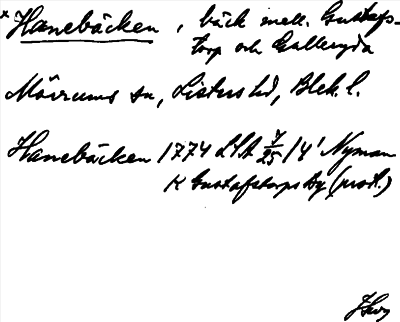 × Hanebäcken, bäck mell. Gustafs-
torp och Galleryda
Mörrums sn, Listers hd, Blek. l.
Hanebäcken 1774 LSA 7/25 14' Nyman
K Gustafstorps by (prot.)